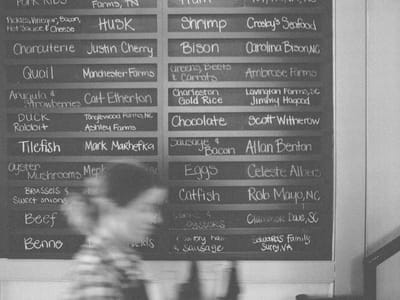 Pork Ribs
Farms, TN
Pickles, Vinegar, Bacon,
Hot Sauce & Cheese
HUSK
Charcuterie Justin Cherry
Quail Manchester Farms
Arugula &
Strawberries
Cait Etherton
DUCK
Tanglewood Farms, NC
Ashley Farms
Tilefish Mark Marhefka
Oyster
Mushrooms
Brussels &
Sweet onions
Beef
Benne
Shrimp Crosby's Seafood
Bison Carolina Bison, NC
Greens, Beets
& Carrots
Ambrose Farms
Charleston
Gold Rice
Lavington Farms, SC
Jimmy Hagood
Chocolate Scott Witherow
Sausage &
Bacon
Allan Benton
Eggs Celeste Albers
Catfish Rob Mayo, NC
Clammer Dave, SC
& Sausage
Edwards Family,
Surry, VA